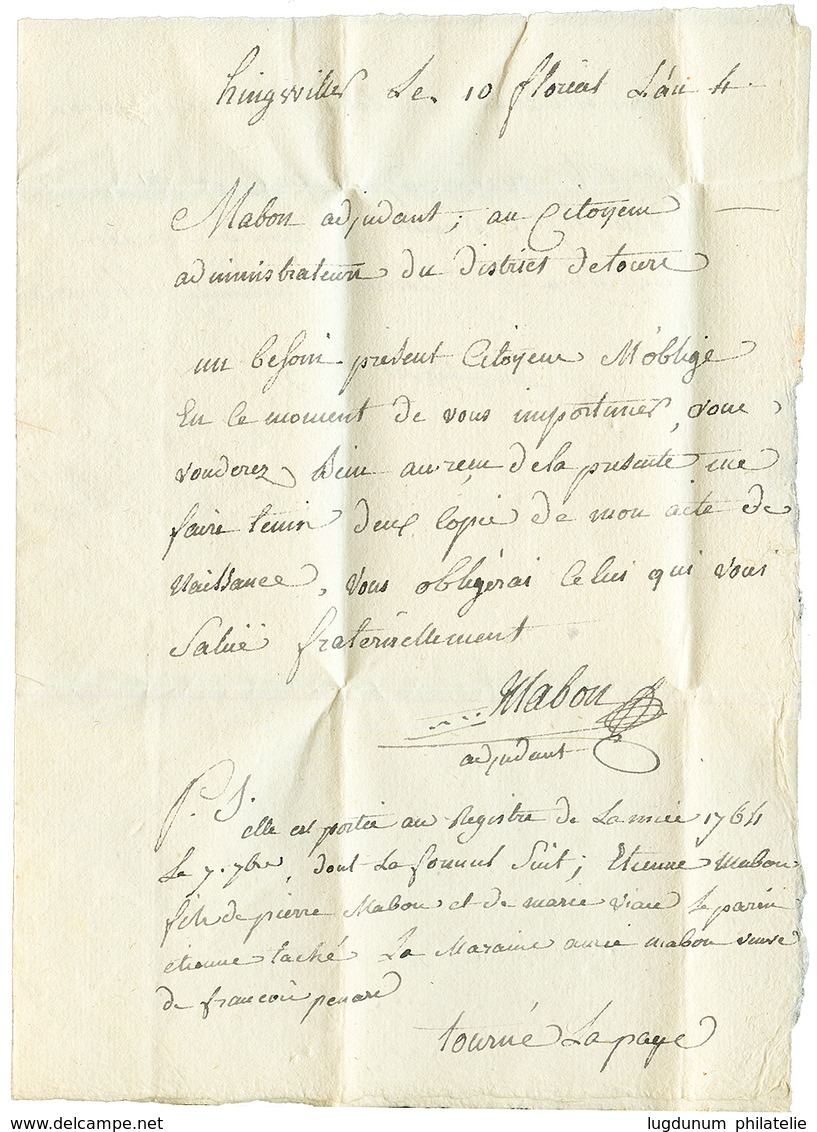 hingwiller Le 10 floréal L'an 4
Mabon adjudant, au Citoyen
administrateur du district detours
un besoin présent Citoyen M'oblige
En ce moment de vous importuner, vous
vouderez Bien au reçu dela présente me
faire tenir deux Copie de mon acte de
Naissance, Vous obligerai Celui qui vous
Saluë fraternellement
Mabon
adjudant
P. S.
elle est portée au Registre de Lannée 1764
Le 7. 7bre, dont La formul Suit; Etienne Mabon
fils de pierre Mabon et de marie viau Le parin
etienne taché La Maraine anne mabon veuve
de francoi penare
tourné La page
www.delcampe.net
lugdunum philatelie